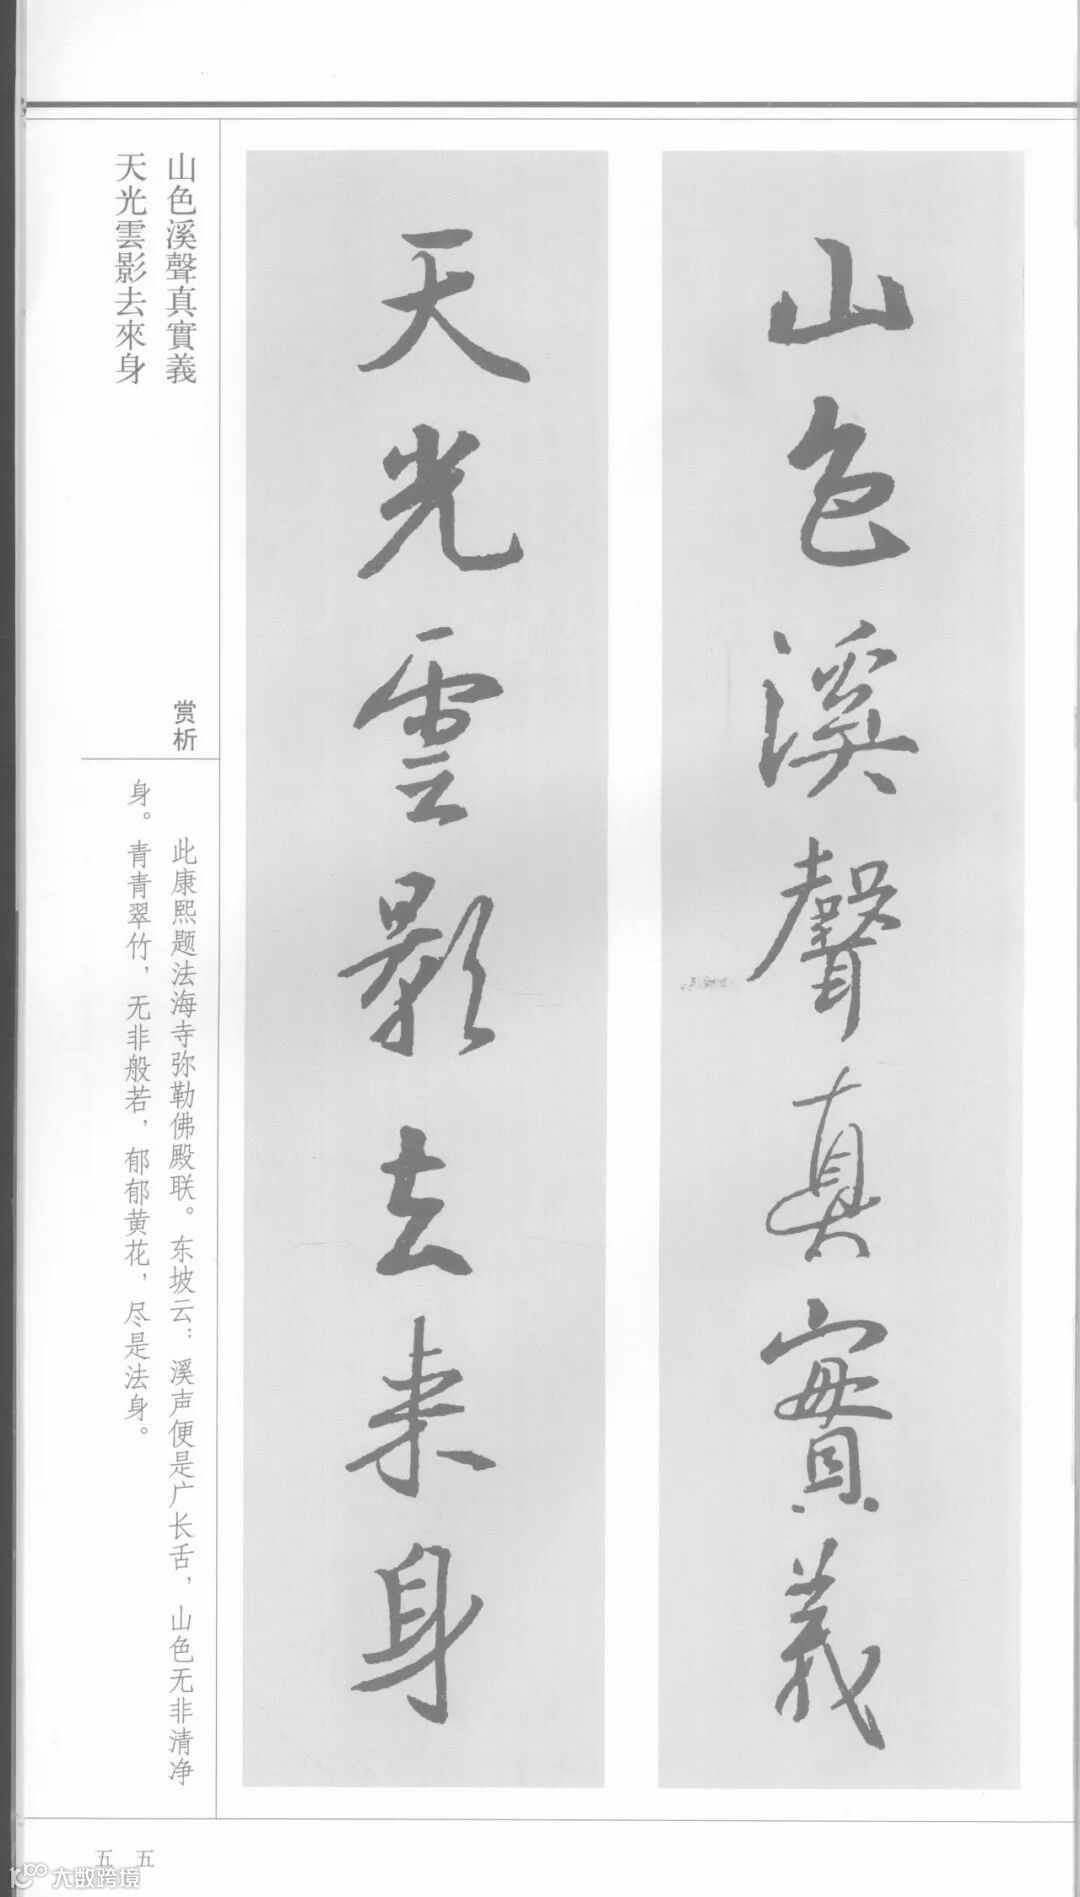 山色溪聲真實義
天光雲影去来身
山色溪聲真實義
天光雲影去來身
赏析
此康熙题法海寺弥勒佛殿联。东坡云：溪声便是广长舌，山色无非清净
身。青青翠竹，无非般若，郁郁黄花，尽是法身。
五五
大数跨境